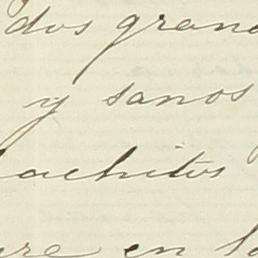 dos grand
y sanos
achitos
re en la